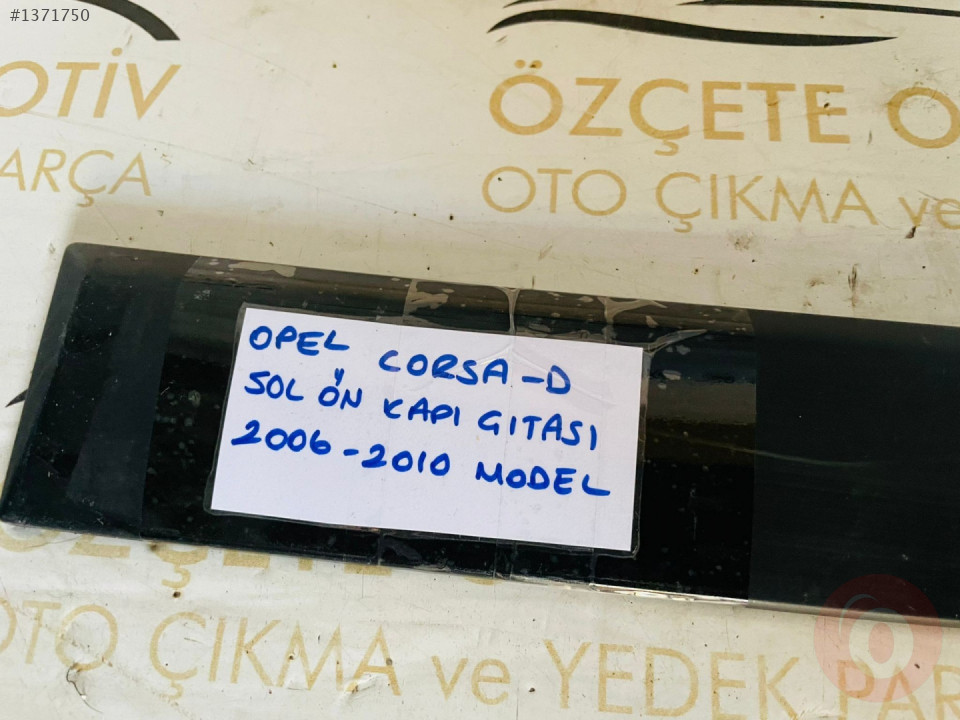 #1371750
OTİV
ARÇA
ÖZÇETE O
OTO ÇIKMA ve
OPEL CORSA-D
SOL ÖN KAPI GITASI
2006-2010 MODEL
ÖZÇETE
OTO ÇIKMA ve YEDEK PAR